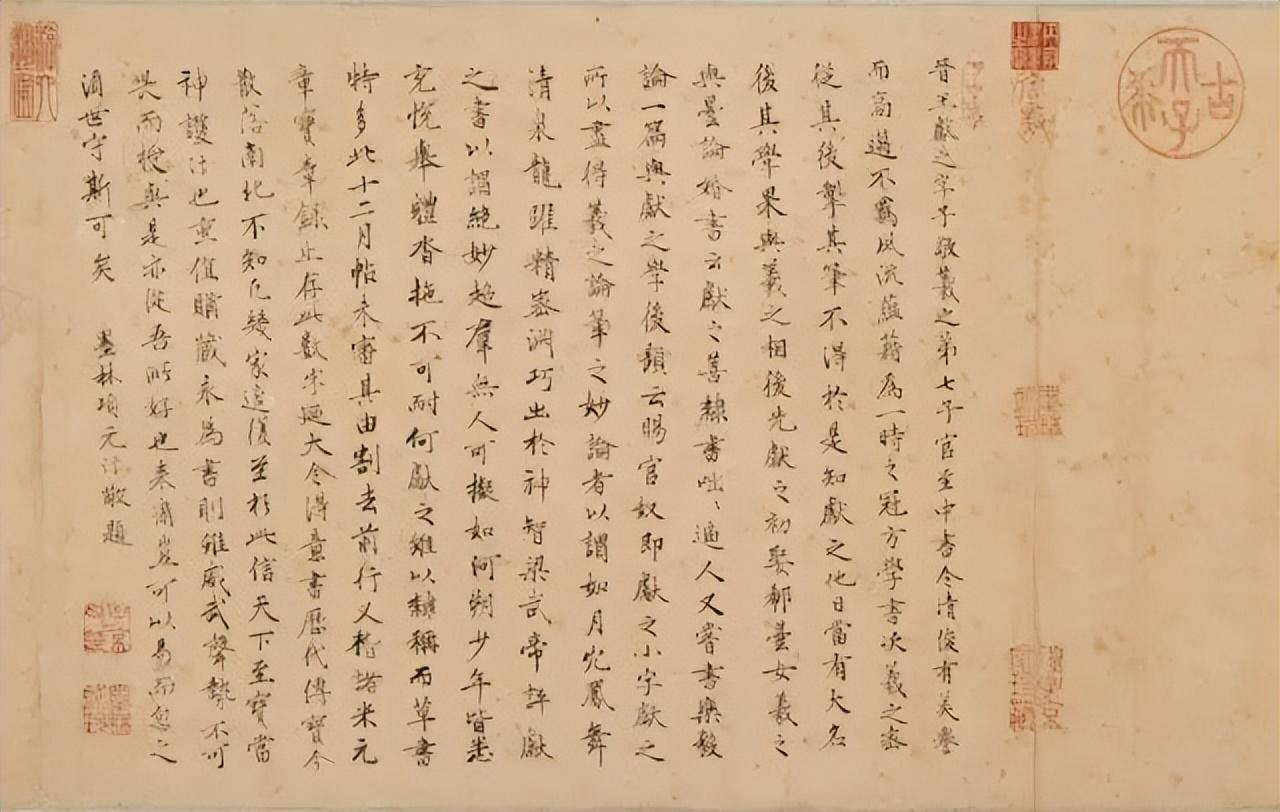 古希天子
晉王獻之字子敬羲之第七子官至中書令清俊有美譽
而高邁不羈風流蘊藉為一時之冠方學書次羲之密
從其後掣其筆不得於是知獻之他日當有大名
後其學果與羲之相後先獻之初娶郗曇女羲之
與曇論婚書云獻之善隸書咄〻逼人又嘗書樂毅
論一篇與獻之學後題云賜官奴即獻之小字獻之
所以盡得羲之論筆之妙論者以謂如丹穴鳳舞
清泉龍躍精密淵巧出於神智梁武帝評獻
之書以謂絕妙超群無人可擬如河朔少年皆悉
充悅舉體沓拖不可耐何獻之雖以隸稱而草書
特多此十二月帖未審其由割去前行又稽諸米元
章寶章錄止存此數字廼大令得意書歷代傳寶今
散落南北不知凡幾家還復至於此信天下至寶當
神護汁也重值購藏永為書則雖威武聲勢不可
畏而授與是亦從吾所好也来裔豈可以易而忽之
須世守斯可矣 墨林項元汴敬題